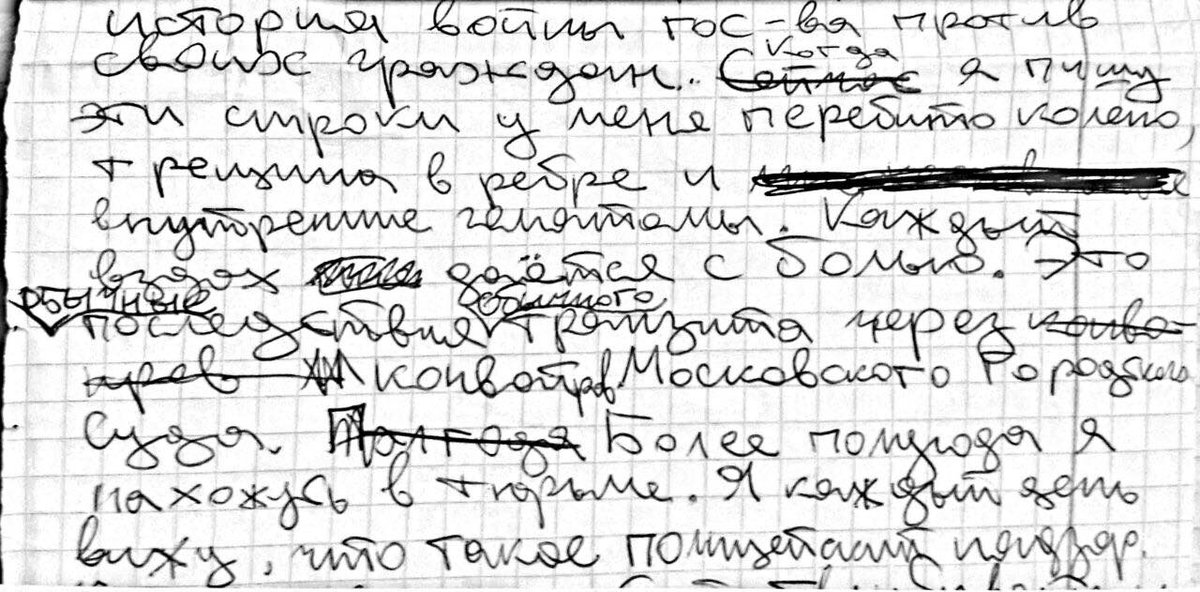 история войны гос-ва против
своих граждан. Когда я пишу
эти строки у меня перебито колено,
трещина в ребре и
внутренние гематомы. Каждый
вздох даётся с болью. Это
обычные последствия обычного транзита через конво-
иров конвойров Московского Городского
Суда. Полгода Более полугода я
нахожусь в тюрьме. Я каждый день
вижу, что такое полицейский надзор.